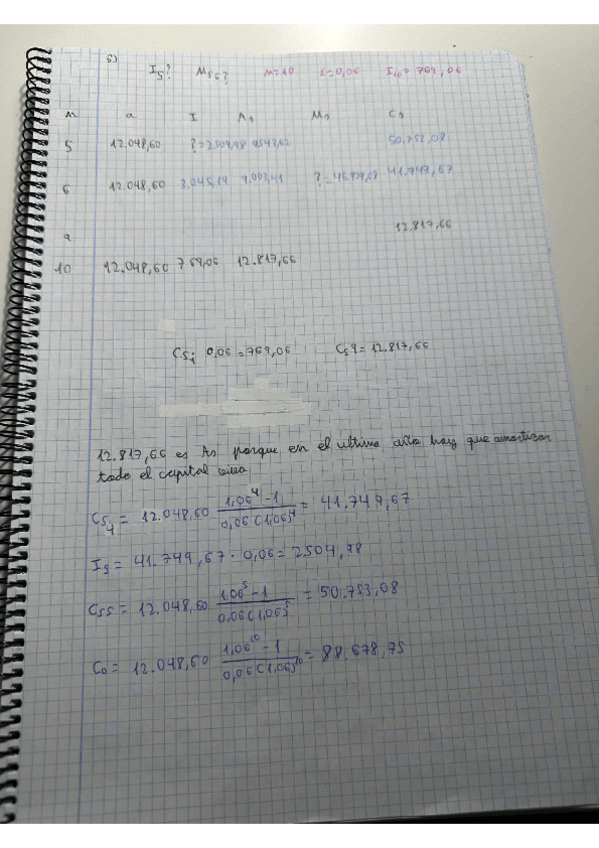 5)
I5? Ms6? n=10 i=0,06 I10=769,06
n a I As Ms Cs
5 12.048,60 ?=2504,98 9543,62 50.753,08
6 12.048,60 3.045,19 9.003,41 ?= 41.749,67
9 12.817,66
10 12.048,60 769,06 12.817,66
0,06=769,06 Cs9=12.817,66
12.817,66 es As porque en el ultimo año hay que amortizar
todo el capital
Cs4 = 12.048,60 1,06^4-1 / 0,06(1,06)^4 = 41.749,67
I5= 41.749,67·0,06=2504,98
Cs5=12.048,60 1,06^5-1 / 0,06(1,06)^5 = 50.753,08
Co= 12.048,60 1,06^10-1 / 0,06(1,06)^10 = 88.678,75